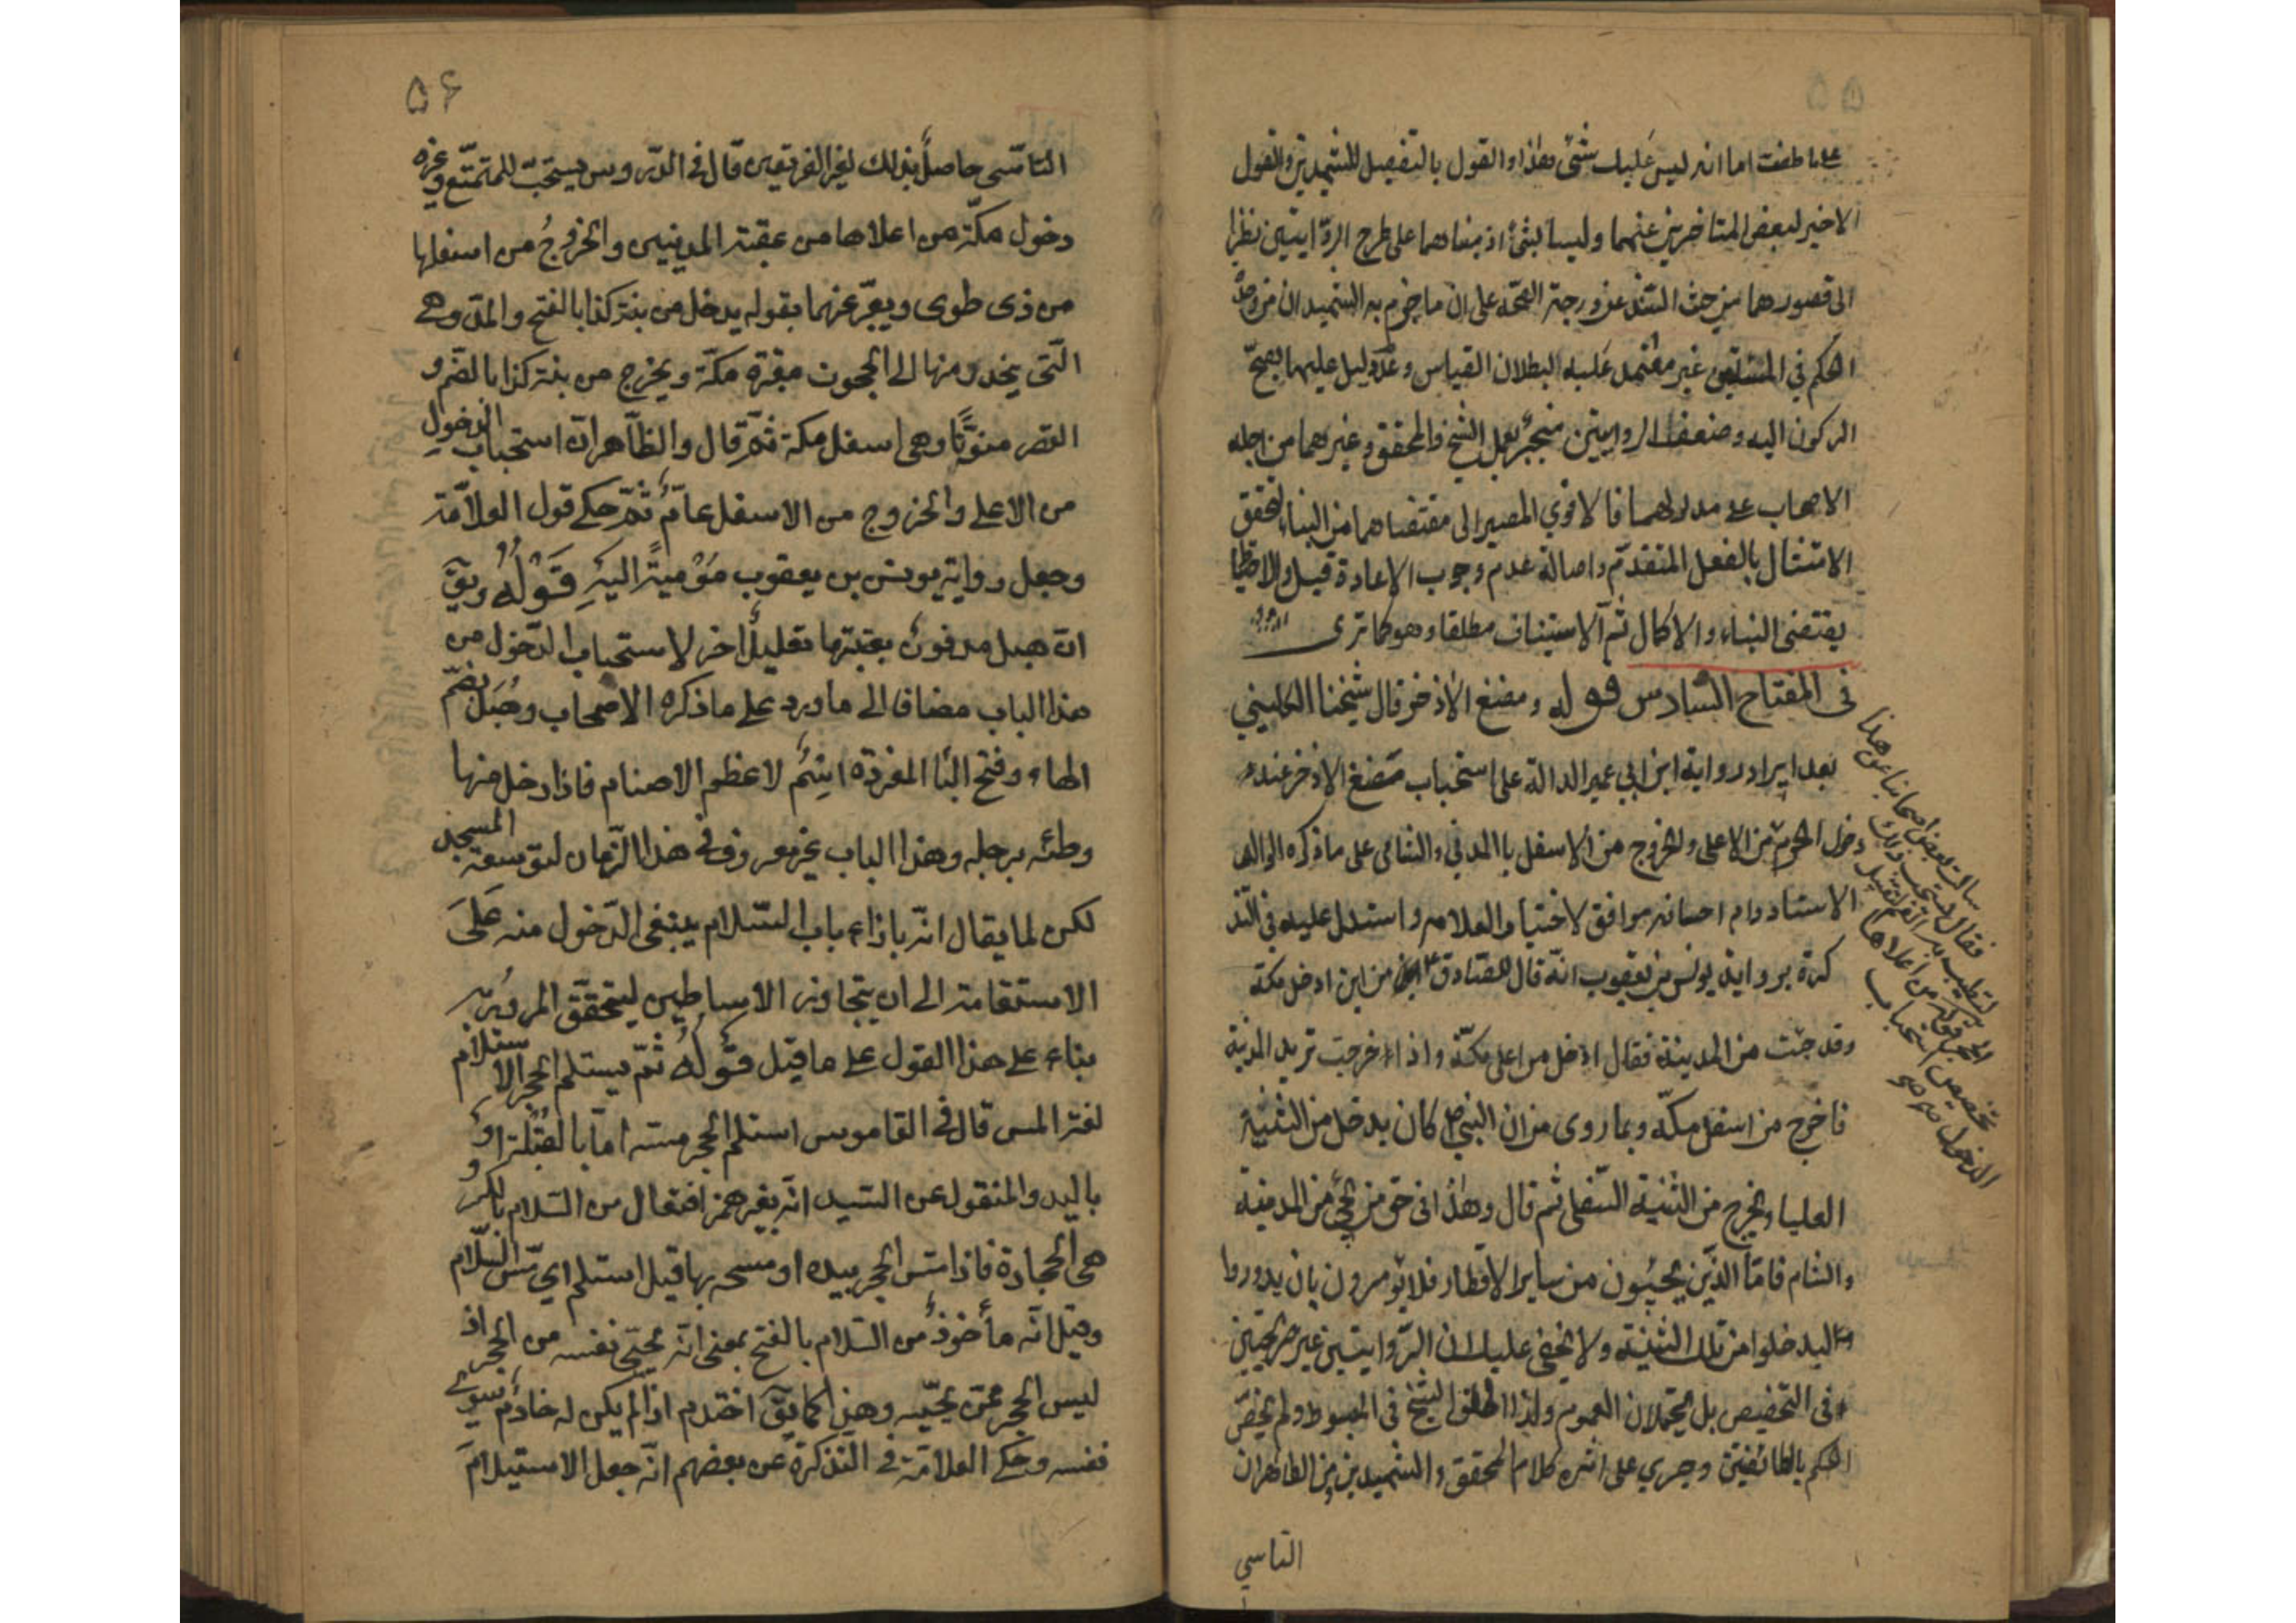 ۵۵
على ما طفت اما انه ليس عليك شئ وهذا والقول بالتفصيل للشهيدين والقول
الاخير لبعض المتاخرين عنهما وليسا بشئ اذ مبناهما على طرح الروايتين نظرا
الى قصورهما من حيث السند عن درجة الصحة على ان ما جزم به الشهيدان من
الحكم في المسئلتين غير معتمد عليه لبطلان القياس وعدم دليل عليهما يصح
الركون اليه وضعف الروايتين منجبر بعمل الشيخ والمحقق وغيرهما من اجله
الاصحاب على مدلولهما فالاقوي المصير الى مقتضاهما من البناء لتحقق
الامتثال بالفعل المتقدم واصالة عدم وجوب الاعادة قيل والاحتياط
يقتضى البناء والاكمال ثم الاستيناف مطلقا وهو كما ترى
فى المفتاح السادس قوله ومضغ الاذخر قال شيخنا الكليني
بعد ايراد رواية ابن ابي عمير الدالة على استحباب مضغ الاذخر عند
دخول الحرم من الاعلى والخروج من الاسفل باالمدني والشامي على ما ذكره الوالد
الاستاد دام احسانه موافق لاختيار العلامه واستدل عليه في التذ
كرة برواية يونس بن يعقوب انه قال للصادق ع من اين ادخل مكة
وقد جئت من المدينة فقال ادخل من اعلى مكة واذا خرجت تريد المدينة
فاخرج من اسفل مكة وبما روى من ان النبي ص كان يدخل من الثنية
العليا ويخرج من الثنية السفلى ثم قال وهذا فى حق من يجئ من المدينة
والشام فامّا الذّين يجيئون من ساير الاقطار فلا يؤمرون بان يدوروا
ليدخلوا من تلك الثنية ولا يخفى عليك ان الروايتين غير صريحتين
فى التخصيص بل يحتملان العموم ولذا اطلق الشيخ فى المبسوط ولم يخصّ
الحكم بالطائفتين وجري على اثره كلام المحقق والشهيدين من الظاهر ان
التاسي
سالت بعض اصحابنا عن هذا
فقال يستحب ذلك
ليطيب به الفم لتقبيل
الحجر قوله من اعلاها
تخصيص استحباب
الدخول
۵۶
التاسّى حاصل بذلك لغير الفريقين قال فى الدّروس يستحبّ للمتمتّع وغيره
دخول مكّة من اعلاها من عقبة المدينيين والخروجُ من اسفلها
من ذى طوى ويعبّر عنهما بقوله يدخل من بنية كذا بالفتح والمدّ وهى
التى ينحدر منها الى الحجون مقبرة مكّة ويخرج من بنية كذا بالضّم و
القصر منوّنًا وهى اسفل مكة ثمّ قال والظّاهر انّ استحباب الدخولِ
من الاعلى والخروج من الاسفل عامٌّ ثمّ حكى قول العلاّمة
وجعل رواية يونس بن يعقوب مؤميةً اليهِ قَوْلُهُ ويقى
انّ هبل مدفونٌ بعتبتها تعليلٌ اخر لاستحباب الدّخول من
هذا الباب مضافا الى ما ورد على ما ذكره الاصحاب وهُبَل بضمّ
الهاء وفتح البا المفردة اسمٌ لاعظم الاصنام فاذا دخل منها
وطئه برجله وهذا الباب غير معروف فى هذا الزّمان لتوسعة المسجد
لكن لما يقال انّه باذاء باب السّلام ينبغى الدّخول منه عَلَى
الاستقامة الى ان يتجاوز الاساطين ليتحقّق المرورُ به
بناء على هذا القول على ما قيل قَوْلُهُ ثمّ يستلم الحجر الاستلام
لغة المس قال فى القاموس استلم الحجر مسّه امّا بالقُبلة او
باليد والمنقول عن السّيد انّه بغير همز افتعال من السّلام بالكسر و
هى الحجارة فاذا مسّ الحجر بيده او مسحه بها قيل استلم اي مسّ السِّلام
وقيل انّه مأخوذٌ من السّلام بالفتح بمعنى انّه يحيّى نفسه من الحجر اذ
ليس الحجر ممّن يحيّيه وهذا كما يقى اختدم اذا لم يكن له خادمٌ سوى
نفسه وحكى العلاّمة فى التّذكرة عن بعضهم انّه جعل الاستيلامَ